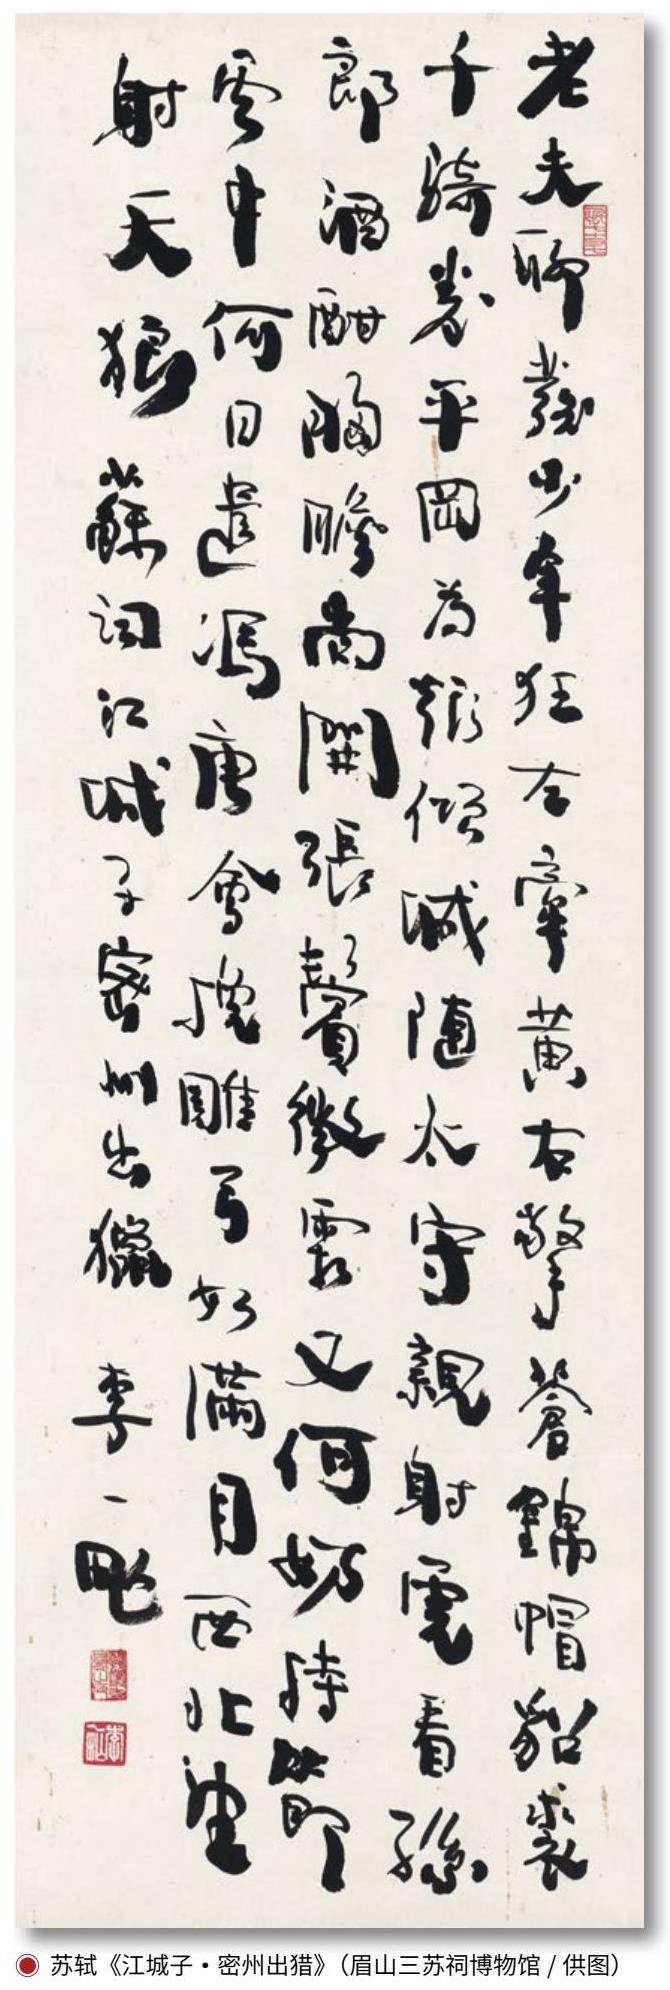 老夫聊發少年狂左牽黃右擎蒼錦帽貂裘
千騎卷平岡為報傾城隨太守親射虎看孫
郎酒酣胸膽尚開張鬢微霜又何妨持節
雲中何日遣馮唐會挽雕弓如滿月西北望
射天狼 蘇詞江城子密州出獵 李一氓
苏轼《江城子·密州出猎》（眉山三苏祠博物馆 / 供图）